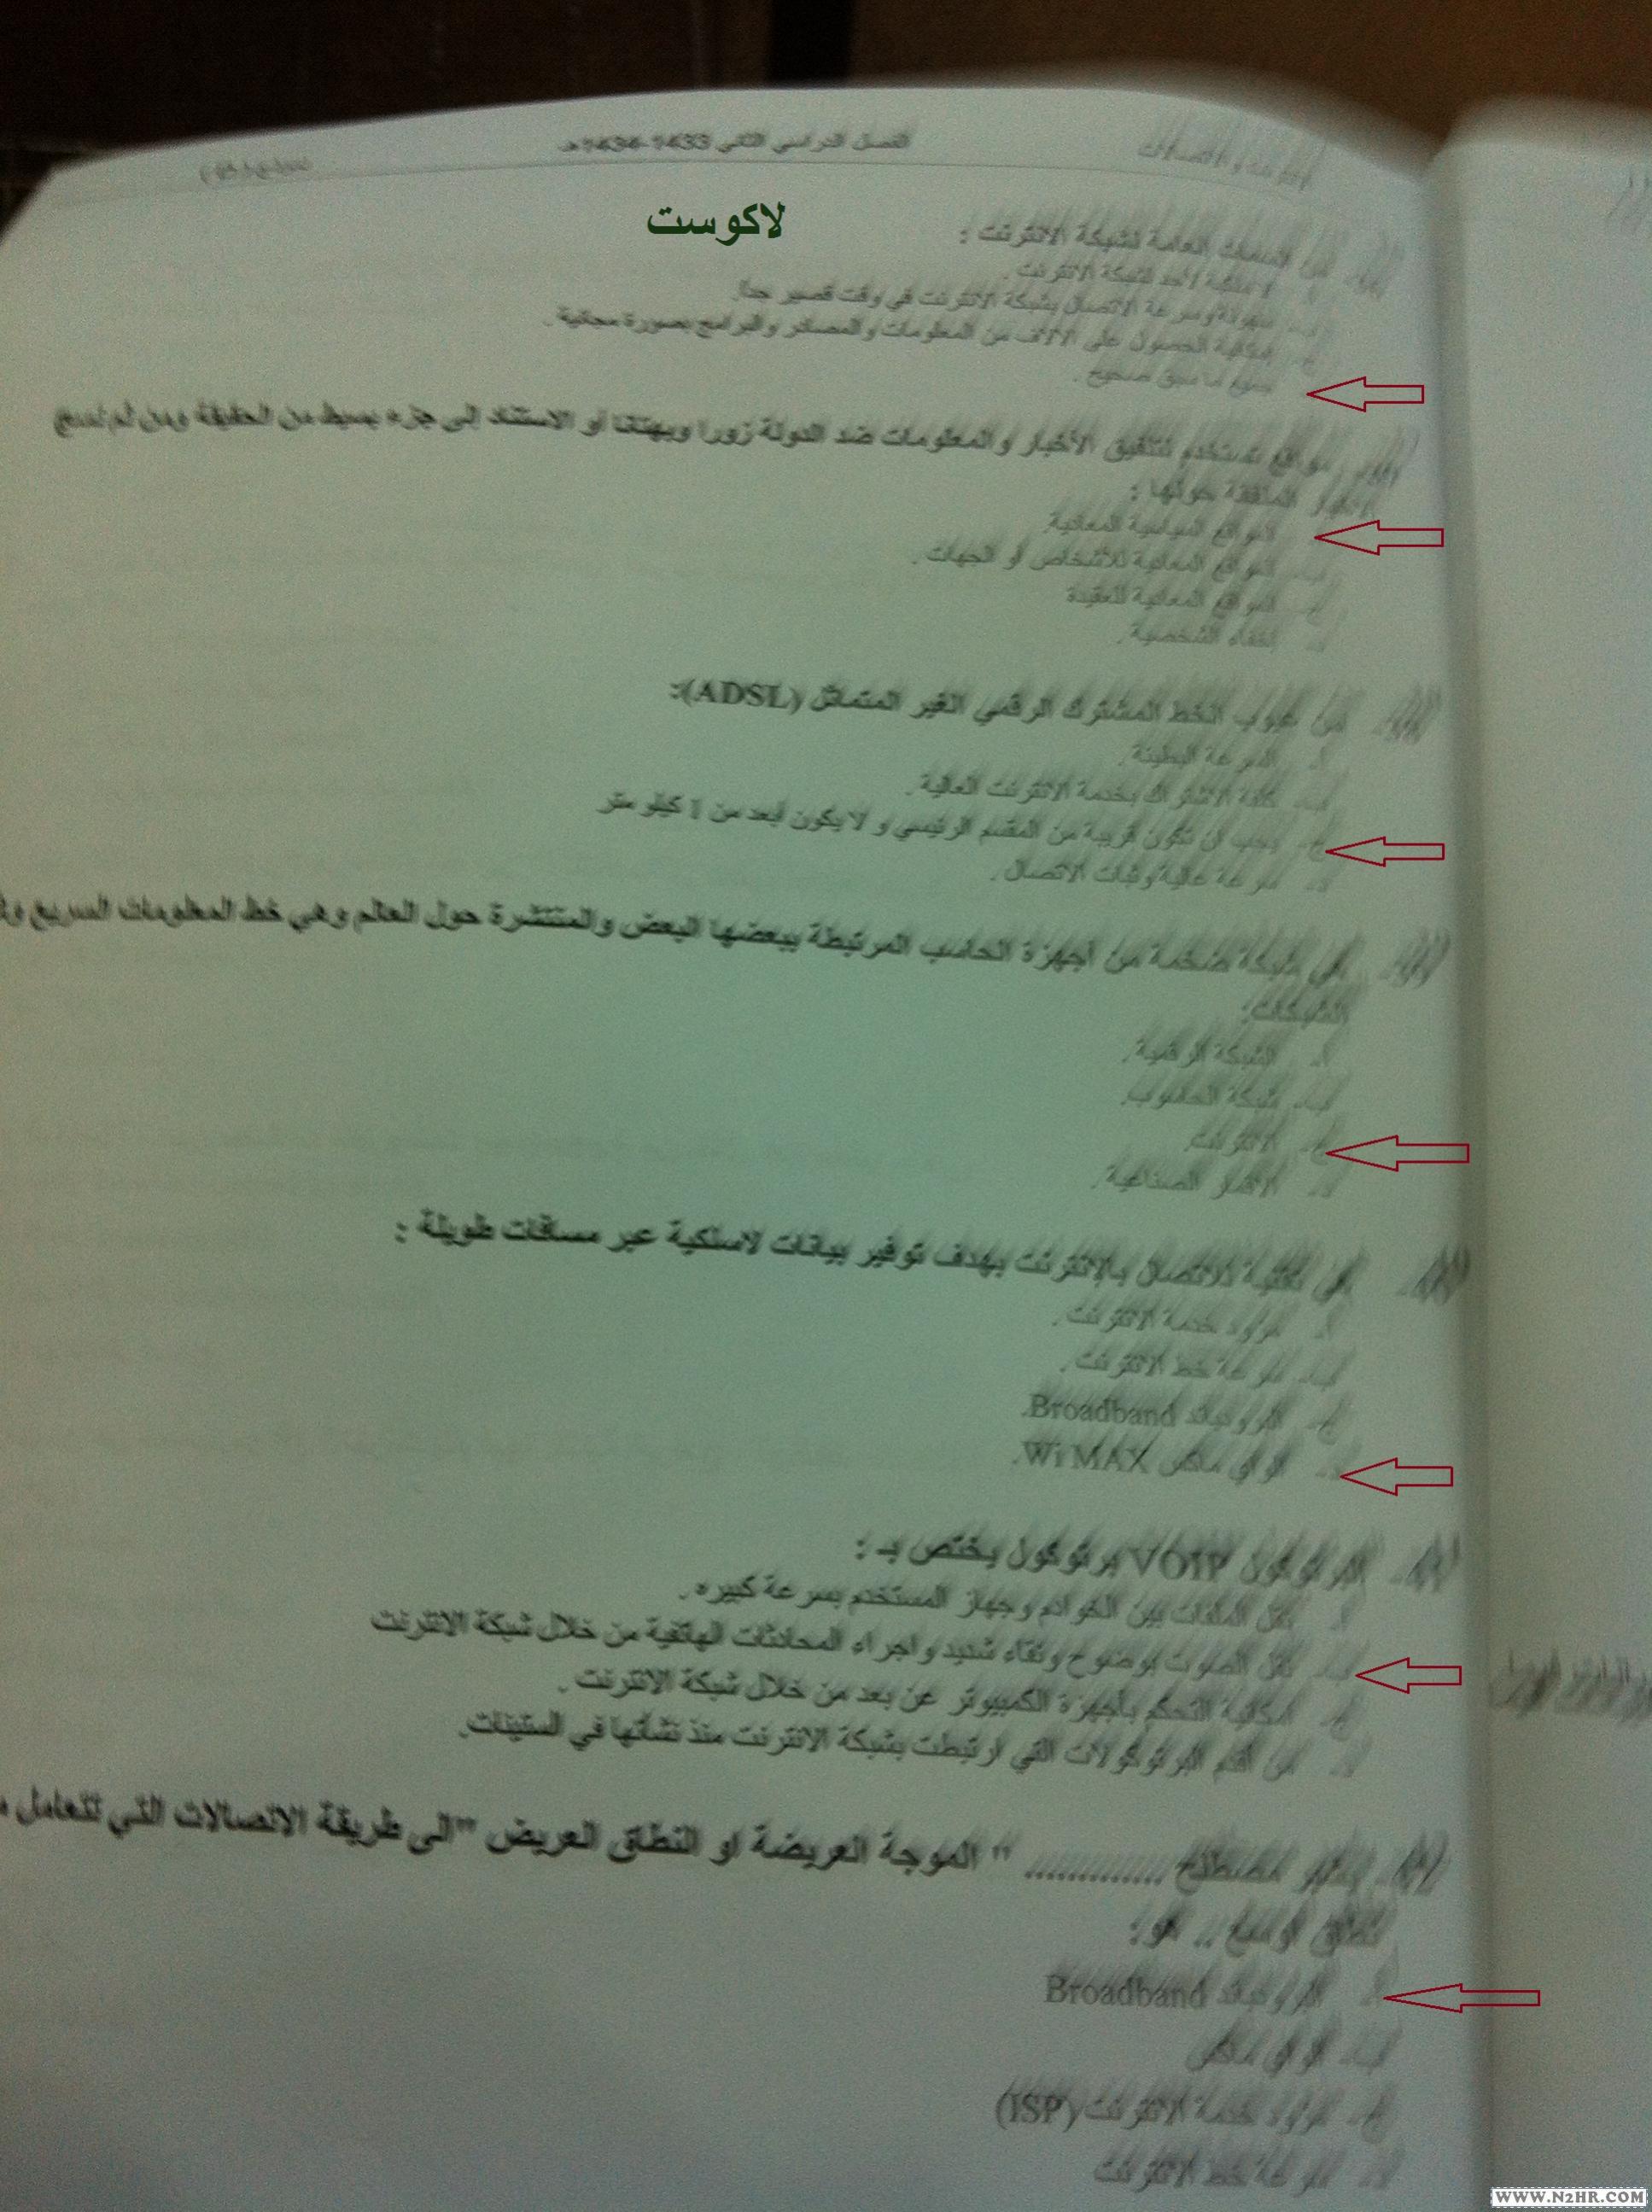 الفصل الدراسي الثاني 1433-1434هـ
لاكوست
من السمات العامة لشبكة الانترنت :
لا ملكية لأحد لشبكة الانترنت .
سهولة وسرعة الاتصال بشبكة الانترنت في وقت قصير جدا.
إمكانية الحصول على الآلاف من المعلومات والمصادر والبرامج بصورة مجانية .
جميع ما سبق صحيح .
مواقع تستخدم لتلفيق الأخبار والمعلومات ضد الدولة زورا وبهتانا أو الاستناد إلى جزء بسيط من الحقيقة ومن ثم نسج
الأخبار الملفقة حولها :
المواقع السياسية المعادية
ب. المواقع المعادية للأشخاص أو الجهات .
ج. المواقع المعادية للعقيدة
د. إخفاء الشخصية .
من عيوب الخط المشترك الرقمي الغير المتماثل (ADSL):
السرعة البطيئة .
ب. كلفة الاشتراك بخدمة الانترنت العالية .
ج. يجب أن تكون قريبة من المقسم الرئيسي و لا يكون أبعد من 1 كيلو متر
د. سرعة عالية وثبات الاتصال .
هي شبكة ضخمة من أجهزة الحاسب المرتبطة ببعضها البعض والمنتشرة حول العالم وهي خط المعلومات السريع
الشبكات:
الشبكة الرقمية .
ب. شبكة الحاسوب.
ج. الانترنت.
د. الاقمار الصناعية .
هي تقنية للاتصال بالإنترنت بهدف توفير بيانات لاسلكية عبر مسافات طويلة :
مزود خدمة الانترنت .
ب. سرعة خط الانترنت .
ج. البرودباند Broadband.
د. الواي ماكس WiMAX.
البرتوكول VOIP برتوكول يختص بـ :
نقل الملفات بين الخوادم وجهاز المستخدم بسرعة كبيره .
ب. نقل الصوت بوضوح ونقاء شديد واجراء المحادثات الهاتفية من خلال شبكة الانترنت
ج. امكانية التحكم بأجهزة الكمبيوتر عن بعد من خلال شبكة الانترنت .
د. من أقدم البرتوكولات التي ارتبطت بشبكة الانترنت منذ نشأتها في الستينات.
يشير مصطلح ............. " الموجة العريضة او النطاق العريض "الى طريقة الاتصالات التي تتعامل
نطاق اوسع .. هو:
البرودباند Broadband
ب. الواي ماكس
ج. مزود خدمة الانترنت (ISP)
د. سرعة خط الانترنت
WWW.N2HR.COM